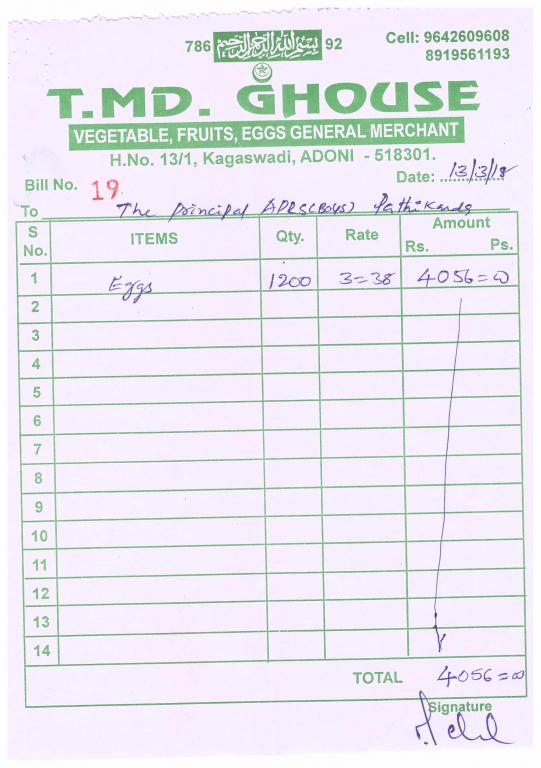 786 بسم الله الرحمن الرحيم 92
Cell: 9642609608
8919561193
T.MD. GHOUSE
VEGETABLE, FRUITS, EGGS GENERAL MERCHANT
H.No. 13/1, Kagaswadi, ADONI - 518301.
Bill No. 19 Date: 13/3/18
To The principal APRS(Boys)
S No. ITEMS Qty. Rate Amount Rs. Ps.
1 Eggs 1200 3=38 4056=00
2
3
4
5
6
7
8
9
10
11
12
13
14
TOTAL 4056=00
Signature